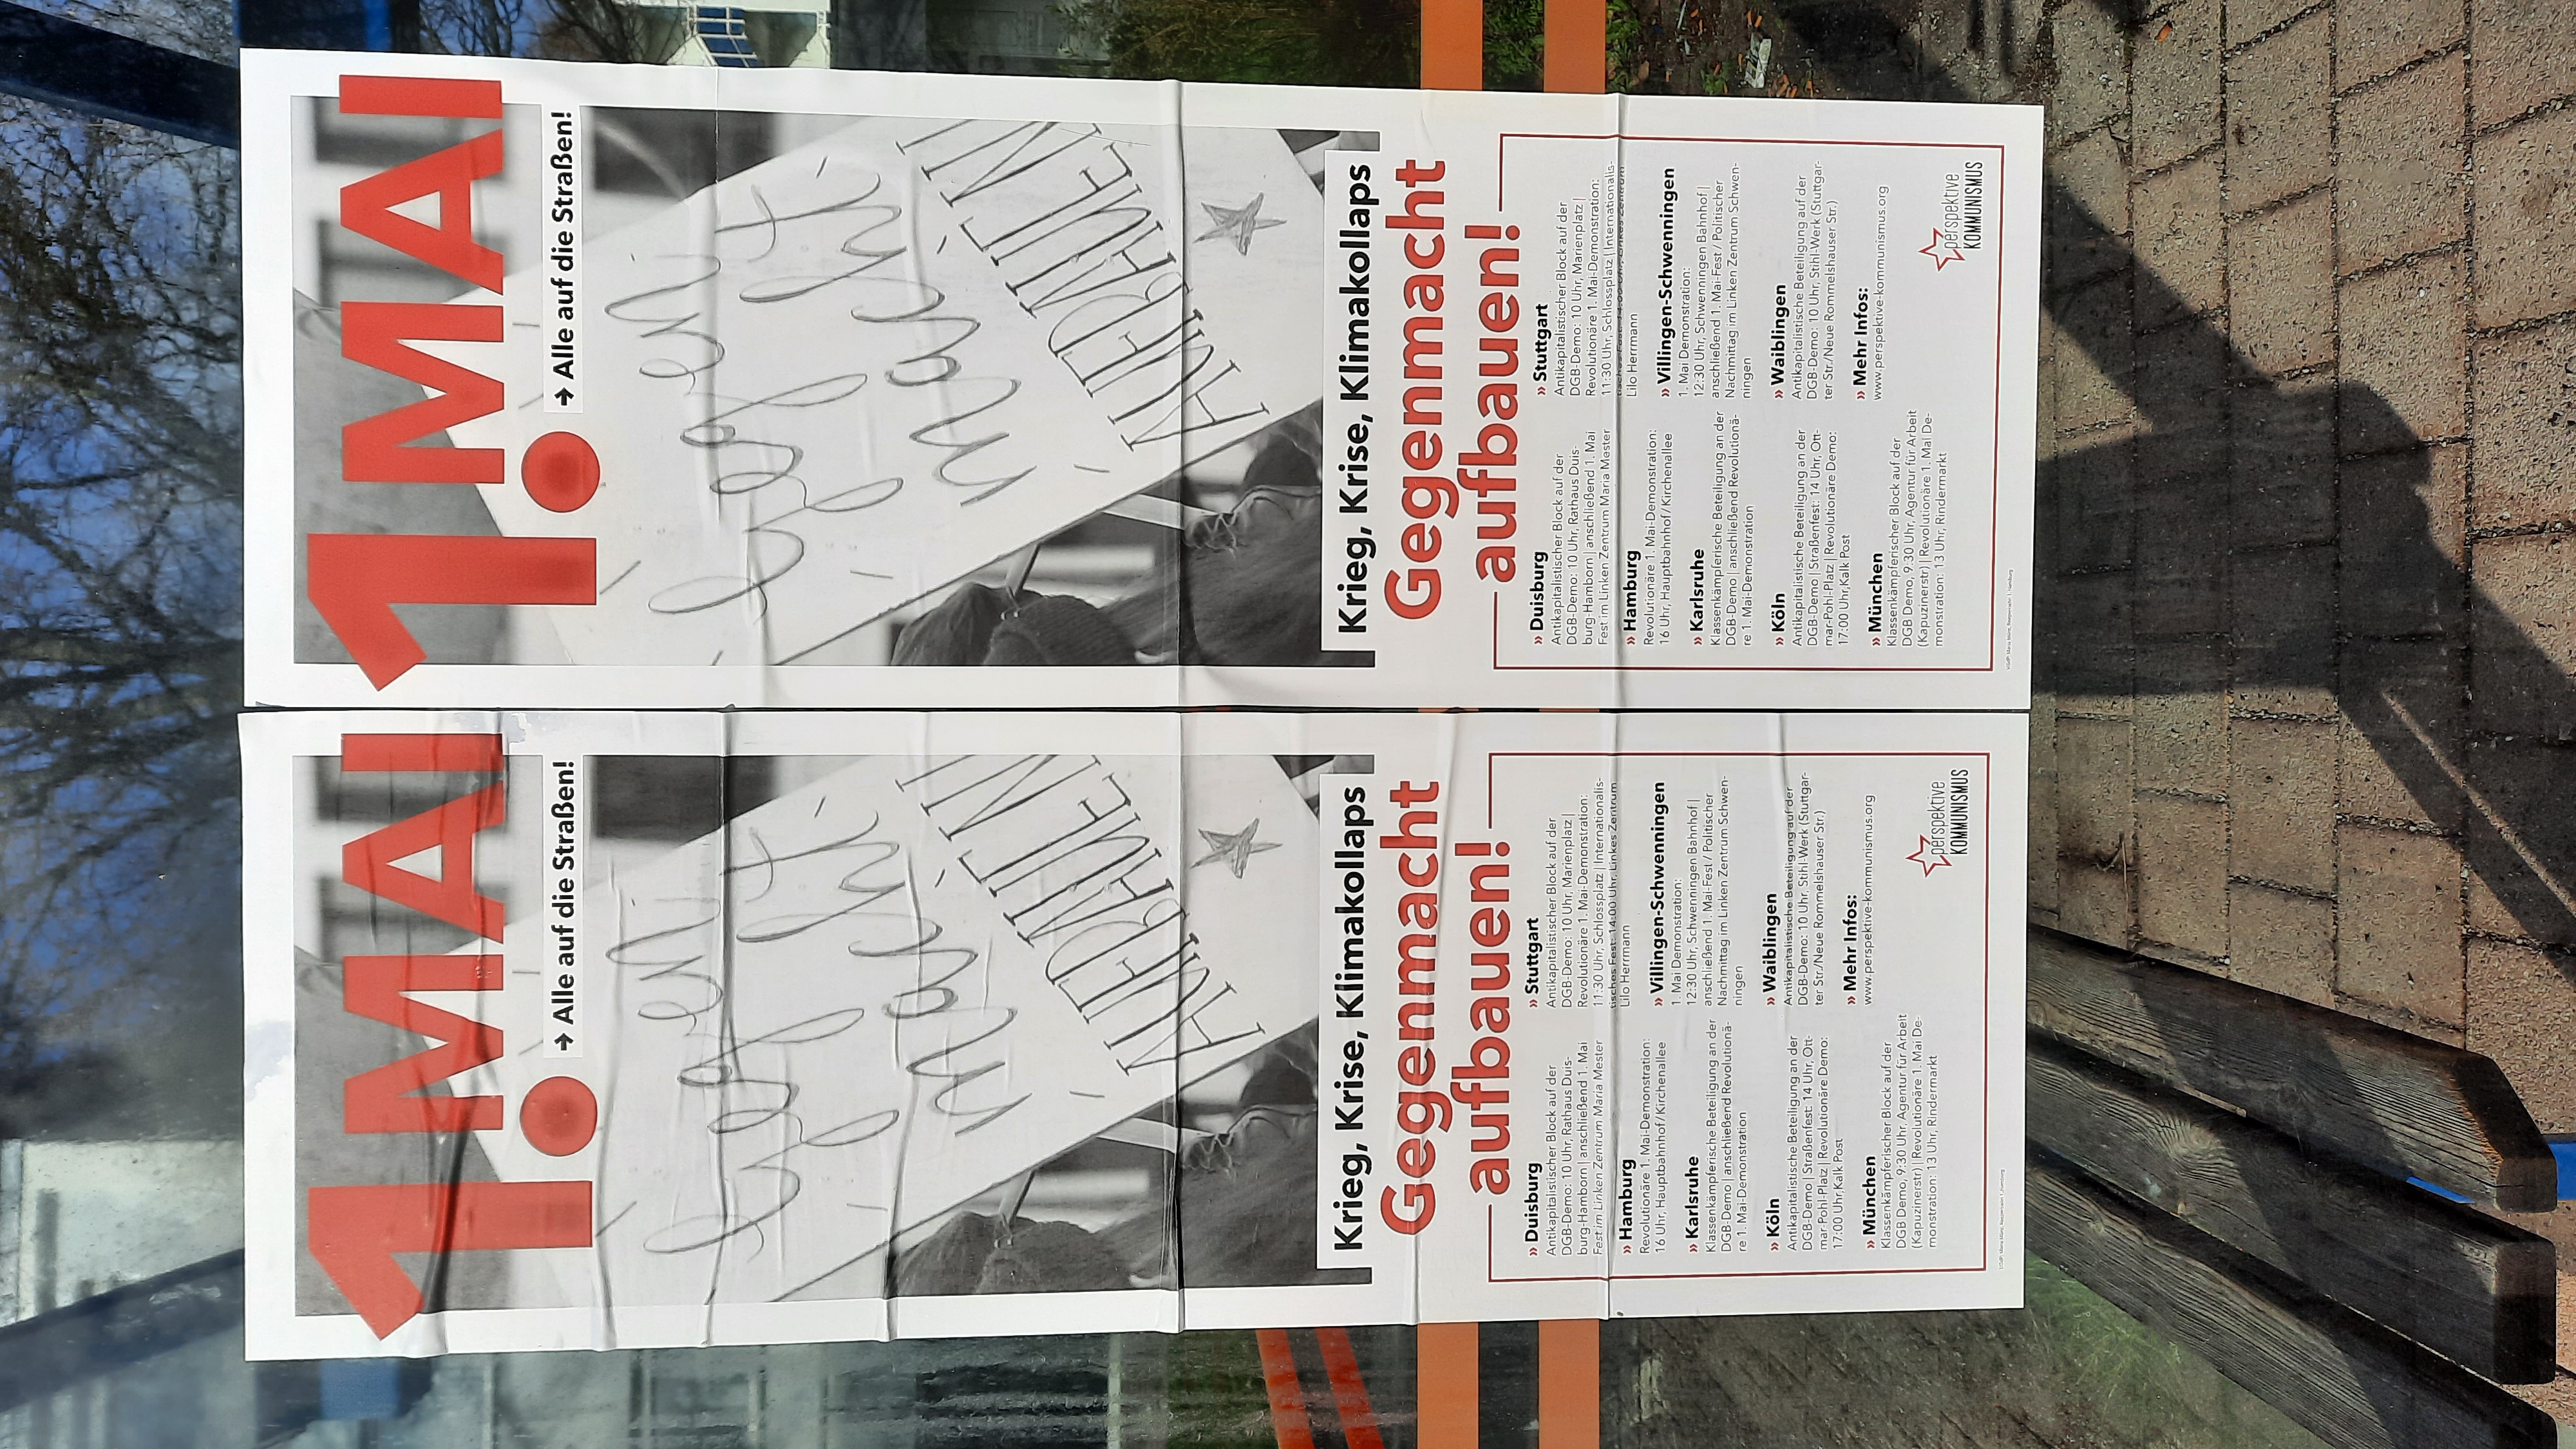 1. MAI
➔ Alle auf die Straßen!
Gegen
macht
AUFBAUEN!
Krieg, Krise, Klimakollaps
Gegenmacht
aufbauen!
» Duisburg
Antikapitalistischer Block auf der
DGB-Demo: 10 Uhr, Rathaus Duis-
burg-Hamborn | anschließend 1. Mai
Fest im Linken Zentrum Maria Mester
» Hamburg
Revolutionäre 1. Mai-Demonstration:
16 Uhr, Hauptbahnhof/Kirchenallee
» Karlsruhe
Klassenkämpferische Beteiligung an der
DGB-Demo | anschließend Revolutionä-
re 1. Mai-Demonstration
» Köln
Antikapitalistische Beteiligung an der
DGB-Demo | Straßenfest: 14 Uhr, Ott-
mar-Pohl-Platz | Revolutionäre Demo:
17:00 Uhr, Kalk Post
» München
Klassenkämpferischer Block auf der
DGB Demo, 9:30 Uhr, Agentur für Arbeit
(Kapuzinerstr) | Revolutionäre 1. Mai De-
monstration: 13 Uhr, Rindermarkt
» Stuttgart
Antikapitalistischer Block auf der
DGB-Demo: 10 Uhr, Marienplatz |
Revolutionäre 1. Mai-Demonstration:
11:30 Uhr, Schlossplatz | Internationalis-
tisches Fest: 14:00 Uhr, Linkes Zentrum
Lilo Herrmann
» Villingen-Schwenningen
1. Mai Demonstration:
12:30 Uhr, Schwenningen Bahnhof |
anschließend 1. Mai-Fest / Politischer
Nachmittag im Linken Zentrum Schwen-
ningen
» Waiblingen
Antikapitalistische Beteiligung auf der
DGB-Demo: 10 Uhr, Stihl-Werk (Stuttgar-
ter Str./Neue Rommelshauser Str.)
» Mehr Infos:
www.perspektive-kommunismus.org
perspektive
KOMMUNISMUS
1. MAI
➔ Alle auf die Straßen!
Gegen
macht
AUFBAUEN!
Krieg, Krise, Klimakollaps
Gegenmacht
aufbauen!
» Duisburg
Antikapitalistischer Block auf der
DGB-Demo: 10 Uhr, Rathaus Duis-
burg-Hamborn | anschließend 1. Mai
Fest im Linken Zentrum Maria Mester
» Hamburg
Revolutionäre 1. Mai-Demonstration:
16 Uhr, Hauptbahnhof/Kirchenallee
» Karlsruhe
Klassenkämpferische Beteiligung an der
DGB-Demo | anschließend Revolutionä-
re 1. Mai-Demonstration
» Köln
Antikapitalistische Beteiligung an der
DGB-Demo | Straßenfest: 14 Uhr, Ott-
mar-Pohl-Platz | Revolutionäre Demo:
17:00 Uhr, Kalk Post
» München
Klassenkämpferischer Block auf der
DGB Demo, 9:30 Uhr, Agentur für Arbeit
(Kapuzinerstr) | Revolutionäre 1. Mai De-
monstration: 13 Uhr, Rindermarkt
» Stuttgart
Antikapitalistischer Block auf der
DGB-Demo: 10 Uhr, Marienplatz |
Revolutionäre 1. Mai-Demonstration:
11:30 Uhr, Schlossplatz | Internationalis-
tisches Fest: 14:00 Uhr, Linkes Zentrum
Lilo Herrmann
» Villingen-Schwenningen
1. Mai Demonstration:
12:30 Uhr, Schwenningen Bahnhof |
anschließend 1. Mai-Fest / Politischer
Nachmittag im Linken Zentrum Schwen-
ningen
» Waiblingen
Antikapitalistische Beteiligung auf der
DGB-Demo: 10 Uhr, Stihl-Werk (Stuttgar-
ter Str./Neue Rommelshauser Str.)
» Mehr Infos:
www.perspektive-kommunismus.org
perspektive
KOMMUNISMUS